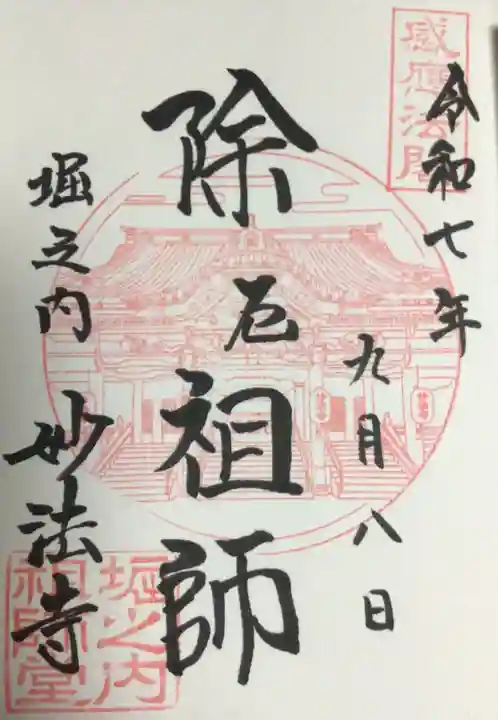 感應法閣
令和七年
九月八日
除厄祖師
堀之内
妙法寺
堀之内
祖師堂